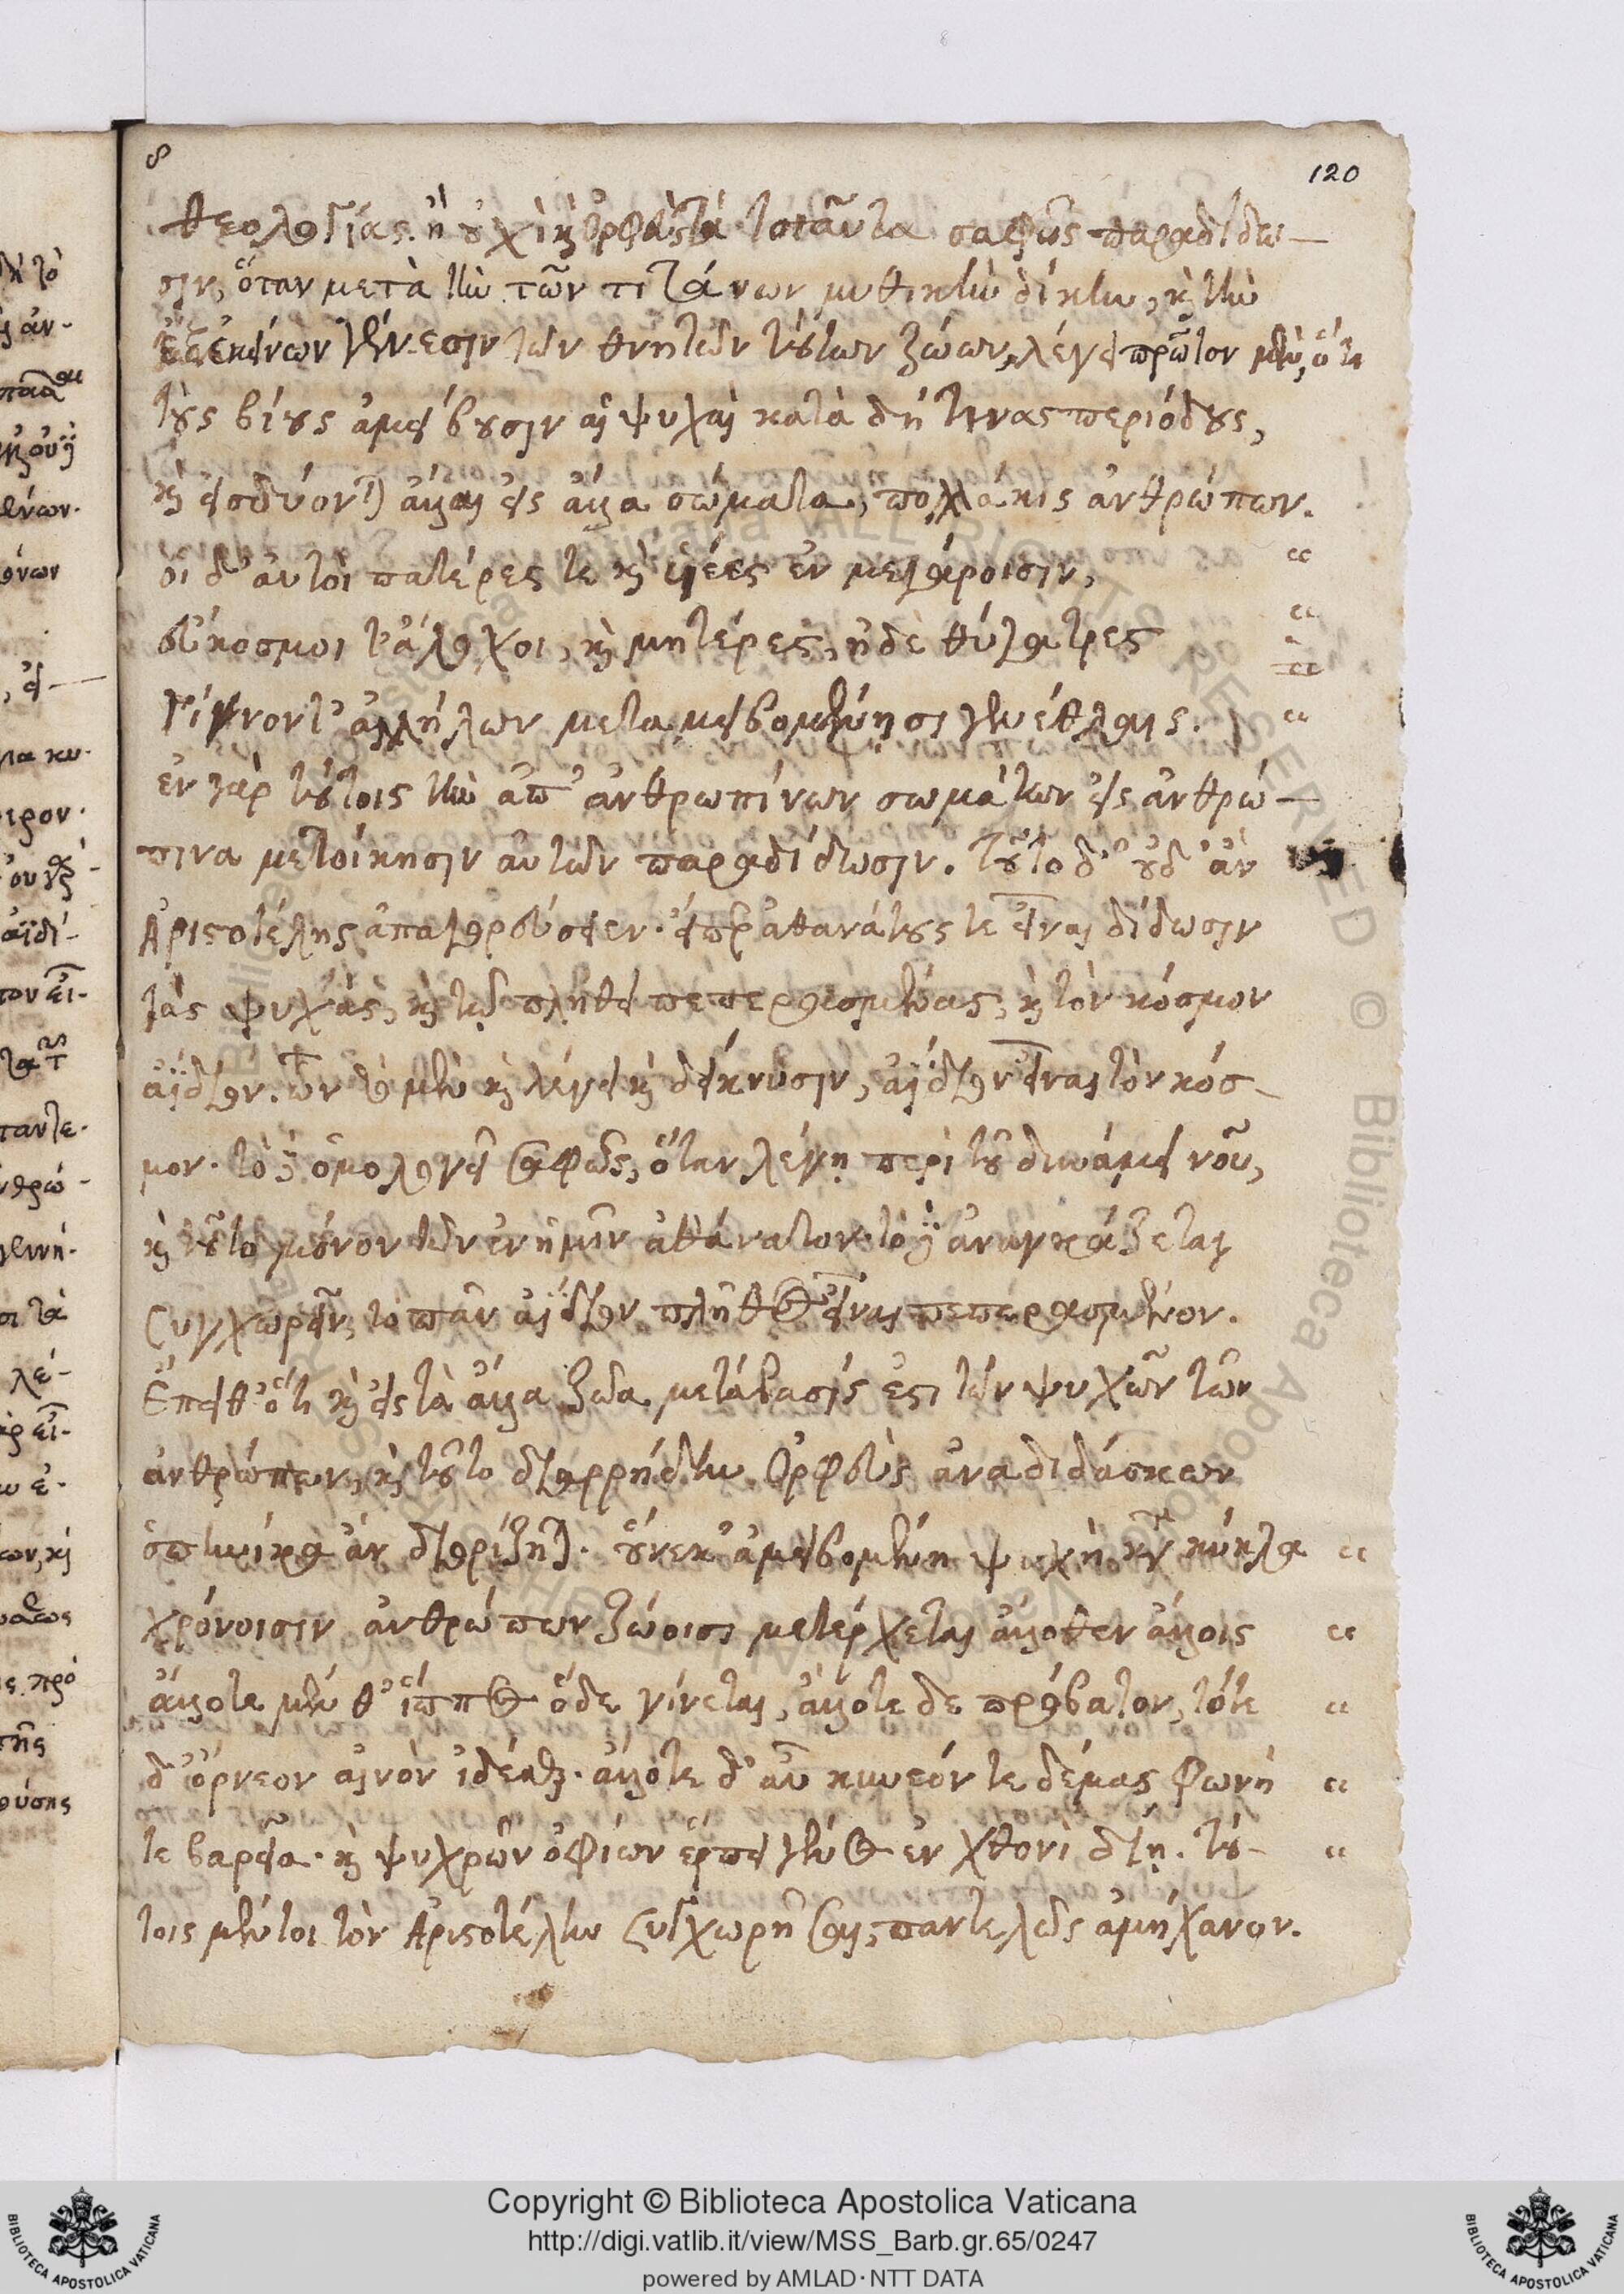 120
θεολογίας. ἢ οὐχὶ καὶ Ὀρφεὺς τὰ τοιαῦτα σαφῶς παραδίδω-
σιν, ὅταν μετὰ τὴν τῶν τιτάνων μυθικὴν δίκην, καὶ τὴν
ἐξ ἐκείνων γένεσιν τῶν θνητῶν τούτων ζώων, λέγει πρῶτον μὲν, ὅτι
τοὺς βίους ἀμείβουσιν αἱ ψυχαὶ κατὰ δή τινας περιόδους,
καὶ εἰσδύονται ἄλλαι εἰς ἄλλα σώματα, πολλάκις ἀνθρώπων.
οἱ δ' αὐτοὶ πατέρες τε καὶ υἱέες ἐν μεγάροισιν,
εὔκοσμοι τ' ἄλοχοι, καὶ μητέρες, ἠδὲ θύγατρες
Γίγνοντ' ἀλλήλων μεταμειβομένῃσι γενέθλαις.
ἐν γὰρ τούτοις τὴν ἀπ' ἀνθρωπίνων σωμάτων εἰς ἀνθρώ-
πινα μετοίκησιν αὐτῶν παραδίδωσιν. τοῦτο δ' οὐδ' ἂν
Ἀριστοτέλης ἀπαγορεύσειεν. εἴπερ ἀθανάτους τε εἶναι δίδωσιν
τὰς ψυχὰς, καὶ τῷ πλήθει πεπερασμένας, καὶ τὸν κόσμον
ἀΐδιον. ὧν τὸ μὲν καὶ λέγει καὶ δείκνυσιν, ἀΐδιον εἶναι τὸν κόσ-
μον. τὸ δὲ ὁμολογεῖ σαφῶς, ὅταν λέγῃ περὶ τοῦ δυνάμει νοῦ,
καὶ τοῦτο μόνον τῶν ἐν ἡμῖν ἀθάνατον. τὸ δὲ ἀναγκάζεται
συγχωρεῖν, τὸ πᾶν ἀΐδιον πλῆθος εἶναι πεπερασμένον.
Ἔπειθ' ὅτι καὶ εἰς τὰ ἄλλα ζῶα μετάβασίς ἐστι τῶν ψυχῶν τῶν
ἀνθρώπων, καὶ τοῦτο διαρρήδην Ὀρφεὺς ἀναδιδάσκων
ὁπηνίκα ἂν διορίζηται. οὕνεκ' ἀμειβομένη ψυχὴ κατὰ κύκλα
χρόνοισιν ἀνθρώπων ζώοισι μετέρχεται ἄλλοθεν ἄλλοις
ἄλλοτε μέν θ' ἵππος ὅδε γίνεται, ἄλλοτε δε πρόβατον, τότε
δ' ὄρνεον αἰνὸν ἰδέσθαι. ἄλλοτε δ' αὖ κυνεόν τε δέμας φωνή
τε βαρεῖα. καὶ ψυχρῶν ὀφίων ἕρπει γένος ἐν χθονὶ δίῃ. τού-
τοις μέντοι τὸν Ἀριστοτέλην συγχωρῆσαι, παντελῶς ἀμήχανον.
Copyright © Biblioteca Apostolica Vaticana
http://digi.vatlib.it/view/MSS_Barb.gr.65/0247
powered by AMLAD · NTT DATA